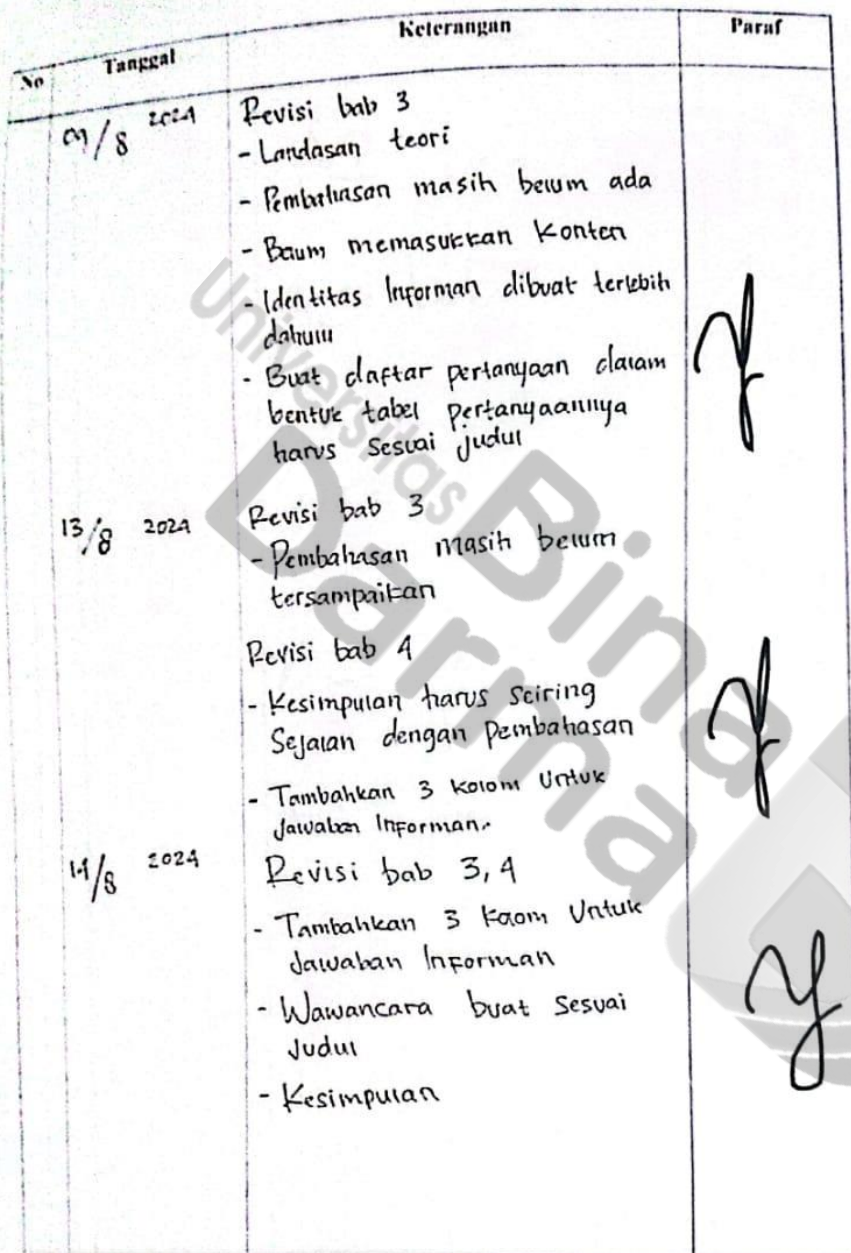 No Tanggal Keterangan Paraf
09/8 2024 Revisi bab 3
- Landasan teori
- Pembahasan masih belum ada
- Belum memasukkan Konten
- Identitas Informan dibuat terlebih
dahulu
- Buat daftar pertanyaan dalam
bentuk tabel pertanyaannya
harus Sesuai Judul
13/8 2024 Revisi bab 3
- Pembahasan masih belum
tersampaikan
Revisi bab 4
- Kesimpulan harus Seiring
Sejalan dengan Pembahasan
- Tambahkan 3 Kolom Untuk
Jawaban Informan.
14/8 2024 Revisi bab 3, 4
- Tambahkan 3 Kolom Untuk
Jawaban Informan
- Wawancara buat Sesuai
Judul
- Kesimpulan
Universitas
Bina
Darma